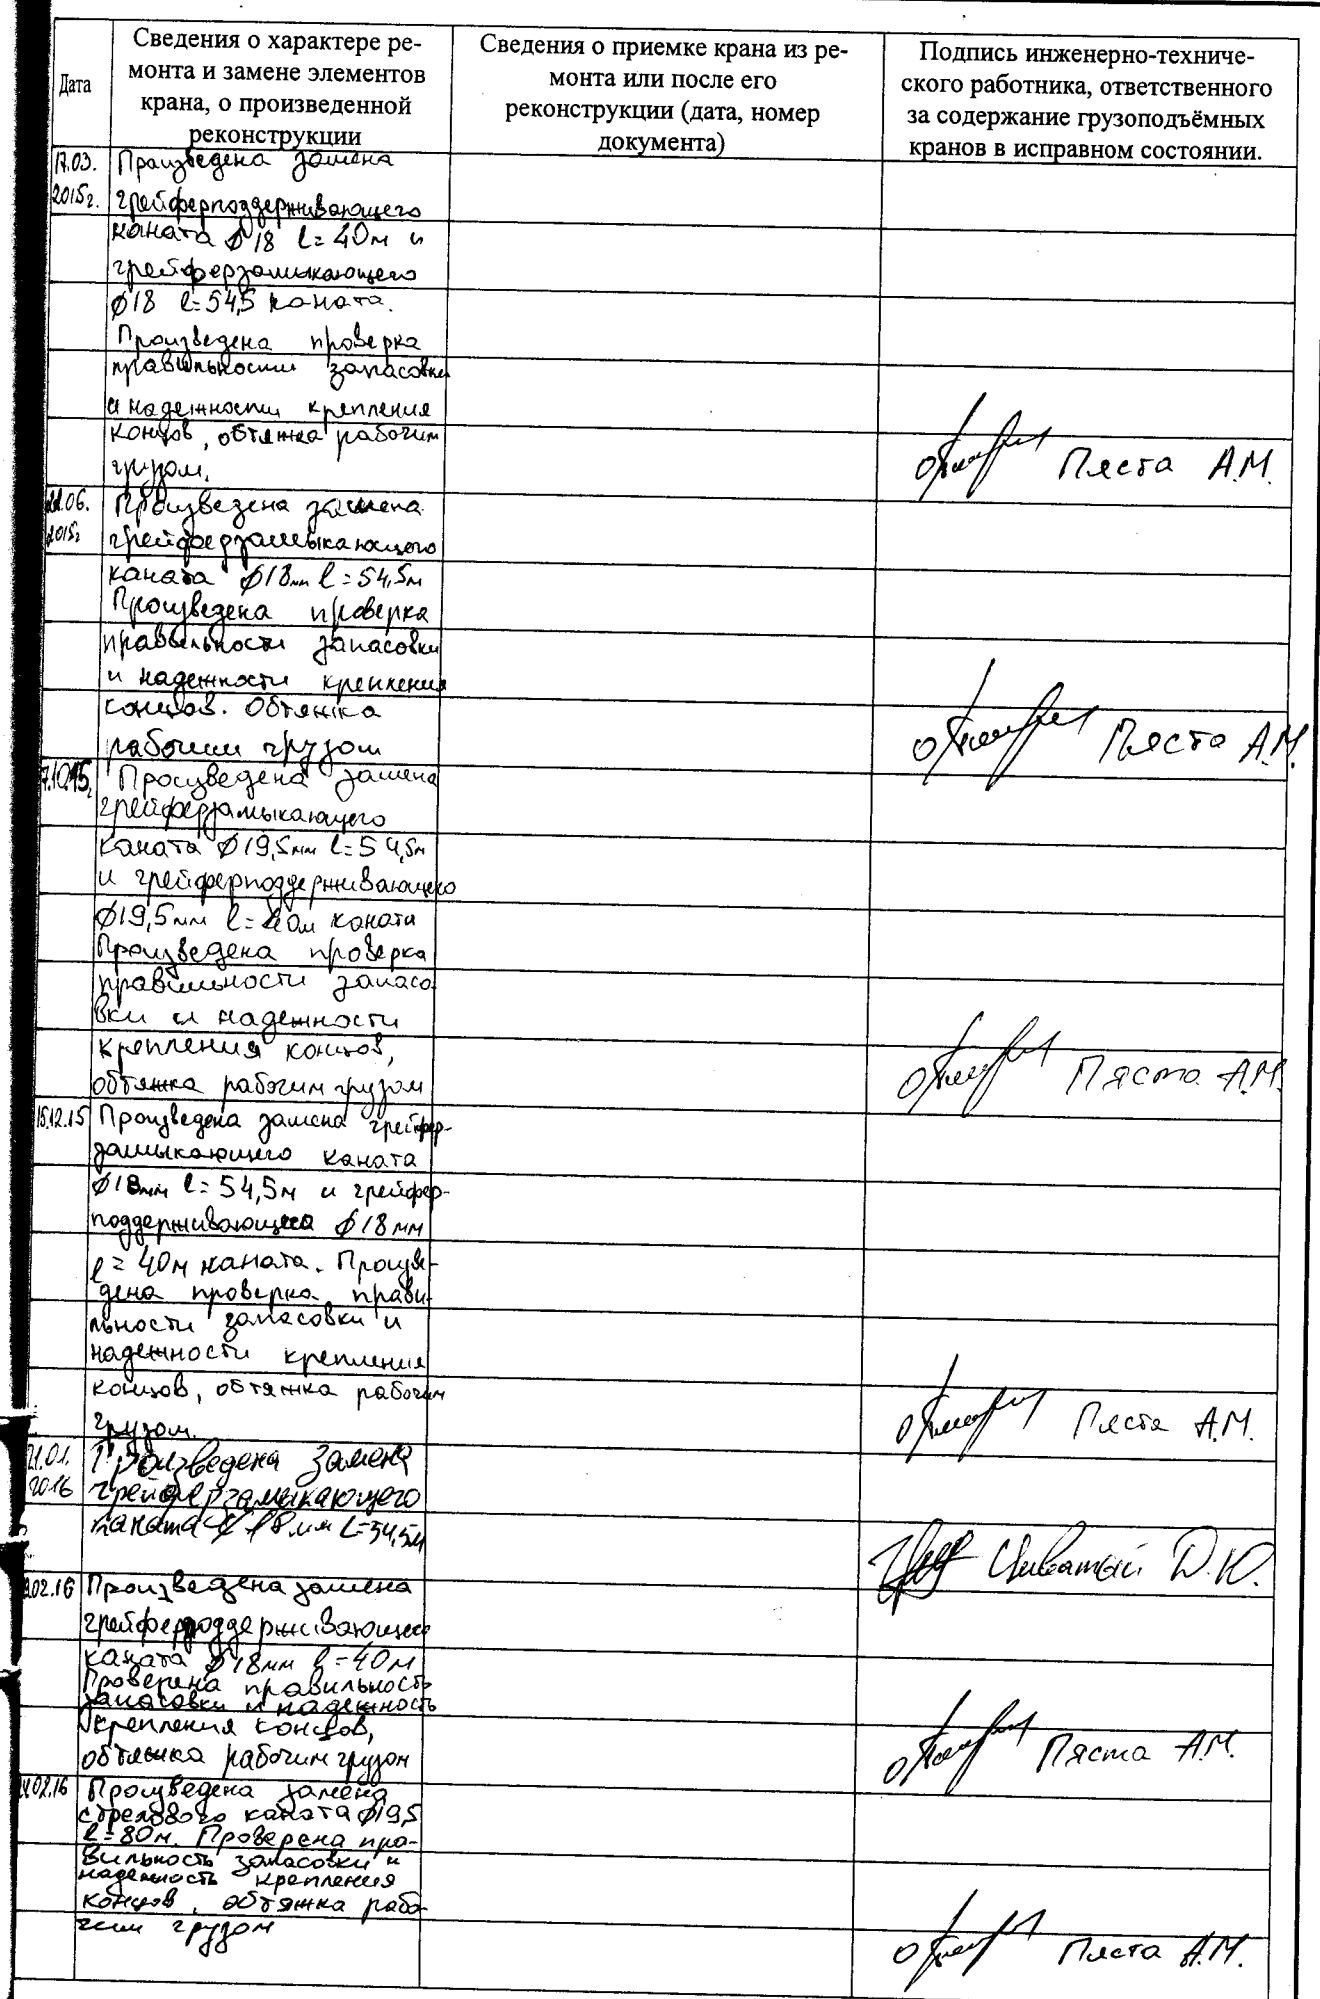 Дата
Сведения о характере ре-
монта и замене элементов
крана, о произведенной
реконструкции
Сведения о приемке крана из ре-
монта или после его
реконструкции (дата, номер
документа)
Подпись инженерно-техниче-
ского работника, ответственного
за содержание грузоподъёмных
кранов в исправном состоянии.
17.03.
2015г.
Произведена замена
грейферподдерживающего
каната ϕ18 l=40м и
грейферзамыкающего
ϕ18 l=54,5 каната.
Произведена проверка
правильности запасовки
и надежности крепления
концов, обтяжка рабочим
грузом.
Пяста А.М.
22.06.
2015г
Произведена замена
грейферзамыкающего
каната ϕ18мм l=54,5м
Произведена проверка
правильности запасовки
и надежности крепления
концов. Обтяжка
рабочим грузом
Пяста А.М.
7.10.15г
Произведена замена
грейферзамыкающего
каната ϕ19,5мм l=54,5м
и грейферподдерживающего
ϕ19,5мм l=40м каната
Произведена проверка
правильности запасо
вки и надежности
крепления концов,
обтяжка рабочим грузом
Пяста А.М.
15.12.15
Произведена замена грейфер-
замыкающего каната
ϕ18мм l=54,5м и грейфер-
поддерживающего ϕ18мм
l=40м каната. Произве-
дена проверка прави-
льности запасовки и
надежности крепления
концов, обтяжка рабочим
грузом.
Пяста А.М.
21.01.
2016
Произведена замена
грейферзамыкающего
каната ϕ18мм L=54,5м
Д.Ю.
02.16
Произведена замена
грейферподдерживающего
каната ϕ18мм l=40м
Проверена правильность
запасовки и надежность
крепления концов,
обтяжка рабочим грузом
Пяста А.М.
02.16
Произведена замена
стрелового каната ϕ19,5
l=80м. Проверена пра-
вильность запасовки и
надежность крепления
концов, обтяжка рабо-
чим грузом
Пяста А.М.